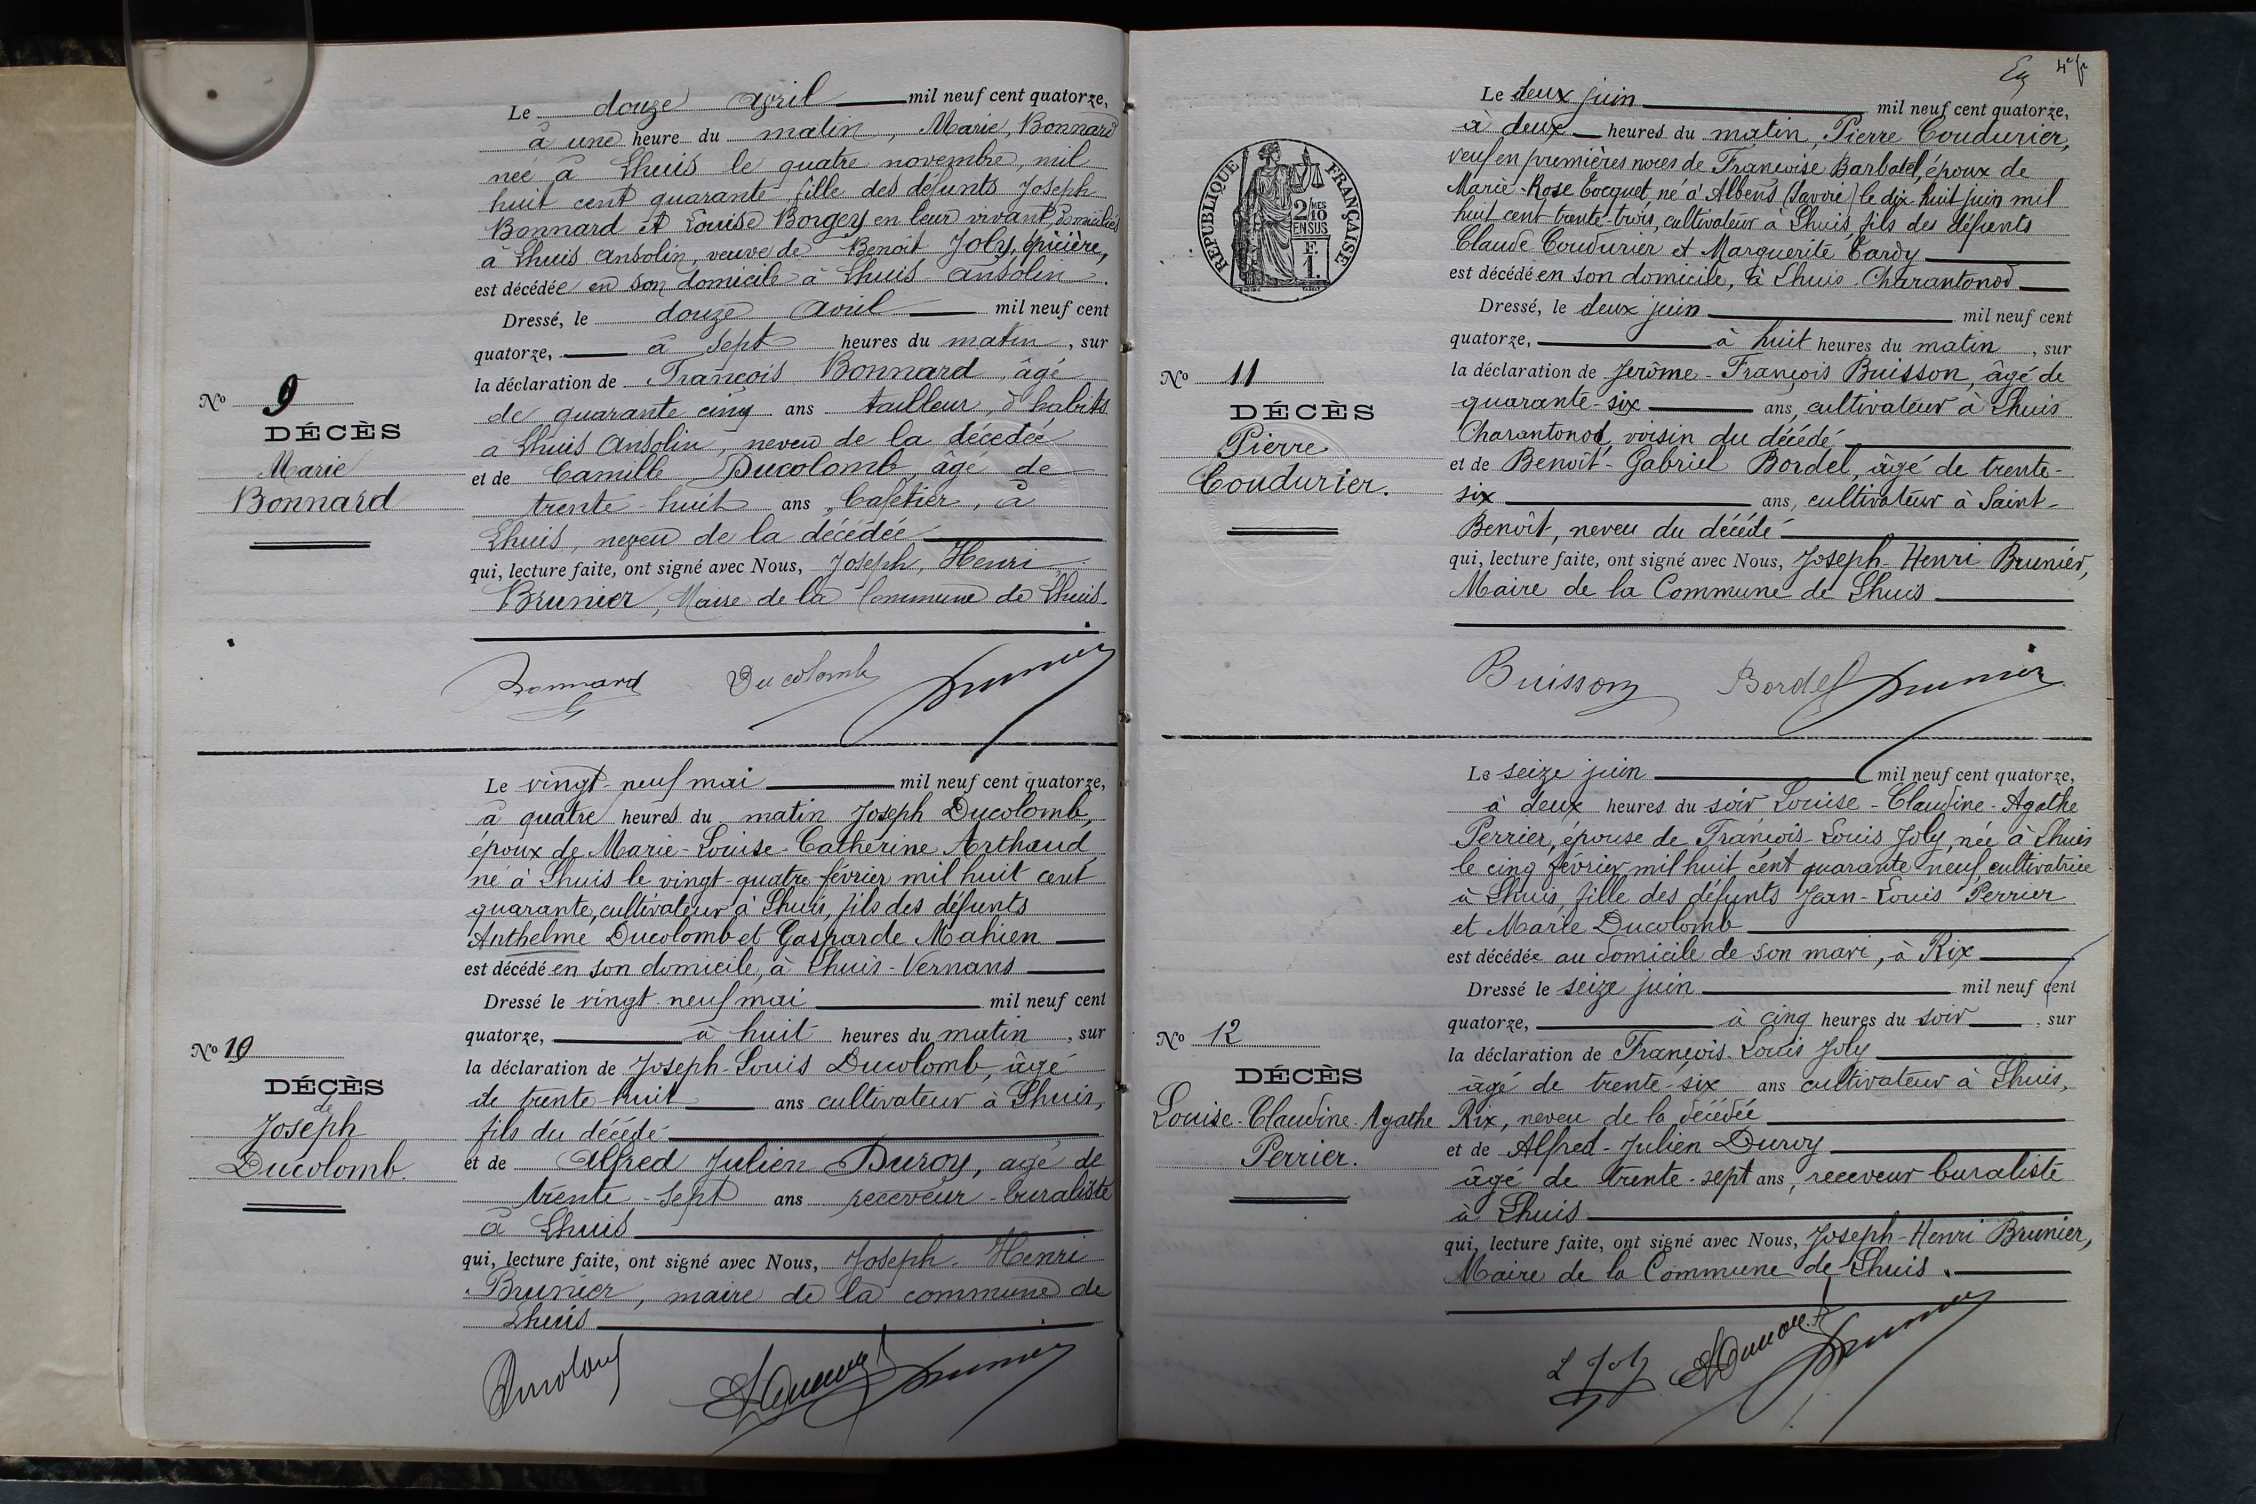 Le douze avril mil neuf cent quatorze,
à une heure du matin, Marie, Bonnard
née à Lhuis le quatre novembre, mil
huit cent quarante fille des défunts Joseph
Bonnard et Louise Borgey en leur vivant, domiciliés
à Lhuis Ansolin, veuve de Benoit Joly, épicière,
est décédée en son domicile à Lhuis-Ansolin.
Dressé, le douze avril mil neuf cent
quatorze, à sept heures du matin, sur
la déclaration de François Bonnard, âgé
de quarante cinq ans tailleur, d'habits
à Lhuis Ansolin, neveu de la décedée
et de Camille Ducolomb, âgé de
trente-huit ans, Cafetier, à
Lhuis, neveu de la décédée
qui, lecture faite, ont signé avec Nous, Joseph, Henri
Brunier, Maire de la Commune de Lhuis.
No 9
DÉCÈS
Marie
Bonnard
Bonnard Ducolomb Brunier
Le vingt-neuf mai mil neuf cent quatorze,
à quatre heures du matin Joseph Ducolomb,
époux de Marie-Louise-Catherine Arthaud
né à Lhuis le vingt-quatre février mil huit cent
quarante, cultivateur à Lhuis, fils des défunts
Anthelme Ducolomb et Gasparde Mahien
est décédé en son domicile, à Lhuis-Vernans
Dressé le vingt-neuf mai mil neuf cent
quatorze, à huit heures du matin, sur
la déclaration de Joseph-Louis Ducolomb, âgé
de trente huit ans cultivateur à Lhuis,
fils du décédé
et de Alfred Julien Duroy, agé de
trente-sept ans receveur-buraliste
à Lhuis
qui, lecture faite, ont signé avec Nous, Joseph-Henri
Brunier, maire de la commune de
Lhuis
No 10
DÉCÈS
de
Joseph
Ducolomb.
Ducolomb ADuroy Brunier
4e f
RÉPUBLIQUE FRANÇAISE
2/10MES
EN SUS
F.
1.
Le deux juin mil neuf cent quatorze,
à deux heures du matin, Pierre Coudurier,
veuf en premières noces de Françoise Barbatel, époux de
Marie-Rose Cocquet, né à Albens (Savoie) le dix-huit juin mil
huit cent trente-trois, cultivateur à Lhuis, fils des défunts
Claude Coudurier et Marguerite Tardy
est décédé en son domicile, à Lhuis-Charantonod
Dressé, le deux juin mil neuf cent
quatorze, à huit heures du matin, sur
la déclaration de Jerôme-François Buisson, âgé de
quarante-six ans, cultivateur à Lhuis
Charantonod, voisin du décédé
et de Benoît-Gabriel Bordel, âgé de trente-
six ans, cultivateur à Saint-
Benoît, neveu du décédé
qui, lecture faite, ont signé avec Nous, Joseph-Henri Brunier,
Maire de la Commune de Lhuis
No 11
DÉCÈS
Pierre
Coudurier.
Buisson Bordel Brunier
Le seize juin mil neuf cent quatorze,
à deux heures du soir Louise-Claudine-Agathe
Perrier, épouse de François-Louis Joly, née à Lhuis
le cinq février mil huit cent quarante neuf, cultivatrice
à Lhuis, fille des défunts Jean-Louis Perrier
et Marie Ducolomb
est décédée au domicile de son mari, à Rix
Dressé le seize juin mil neuf cent
quatorze, à cinq heures du soir, sur
la déclaration de François-Louis Joly
âgé de trente-six ans cultivateur à Lhuis,
Rix, neveu de la décédée
et de Alfred-Julien Duroy
âgé de trente-sept ans, receveur buraliste
à Lhuis
qui, lecture faite, ont signé avec Nous, Joseph-Henri Brunier,
Maire de la Commune de Lhuis.
No 12
DÉCÈS
Louise-Claudine-Agathe
Perrier.
L Joly ADuroy Brunier